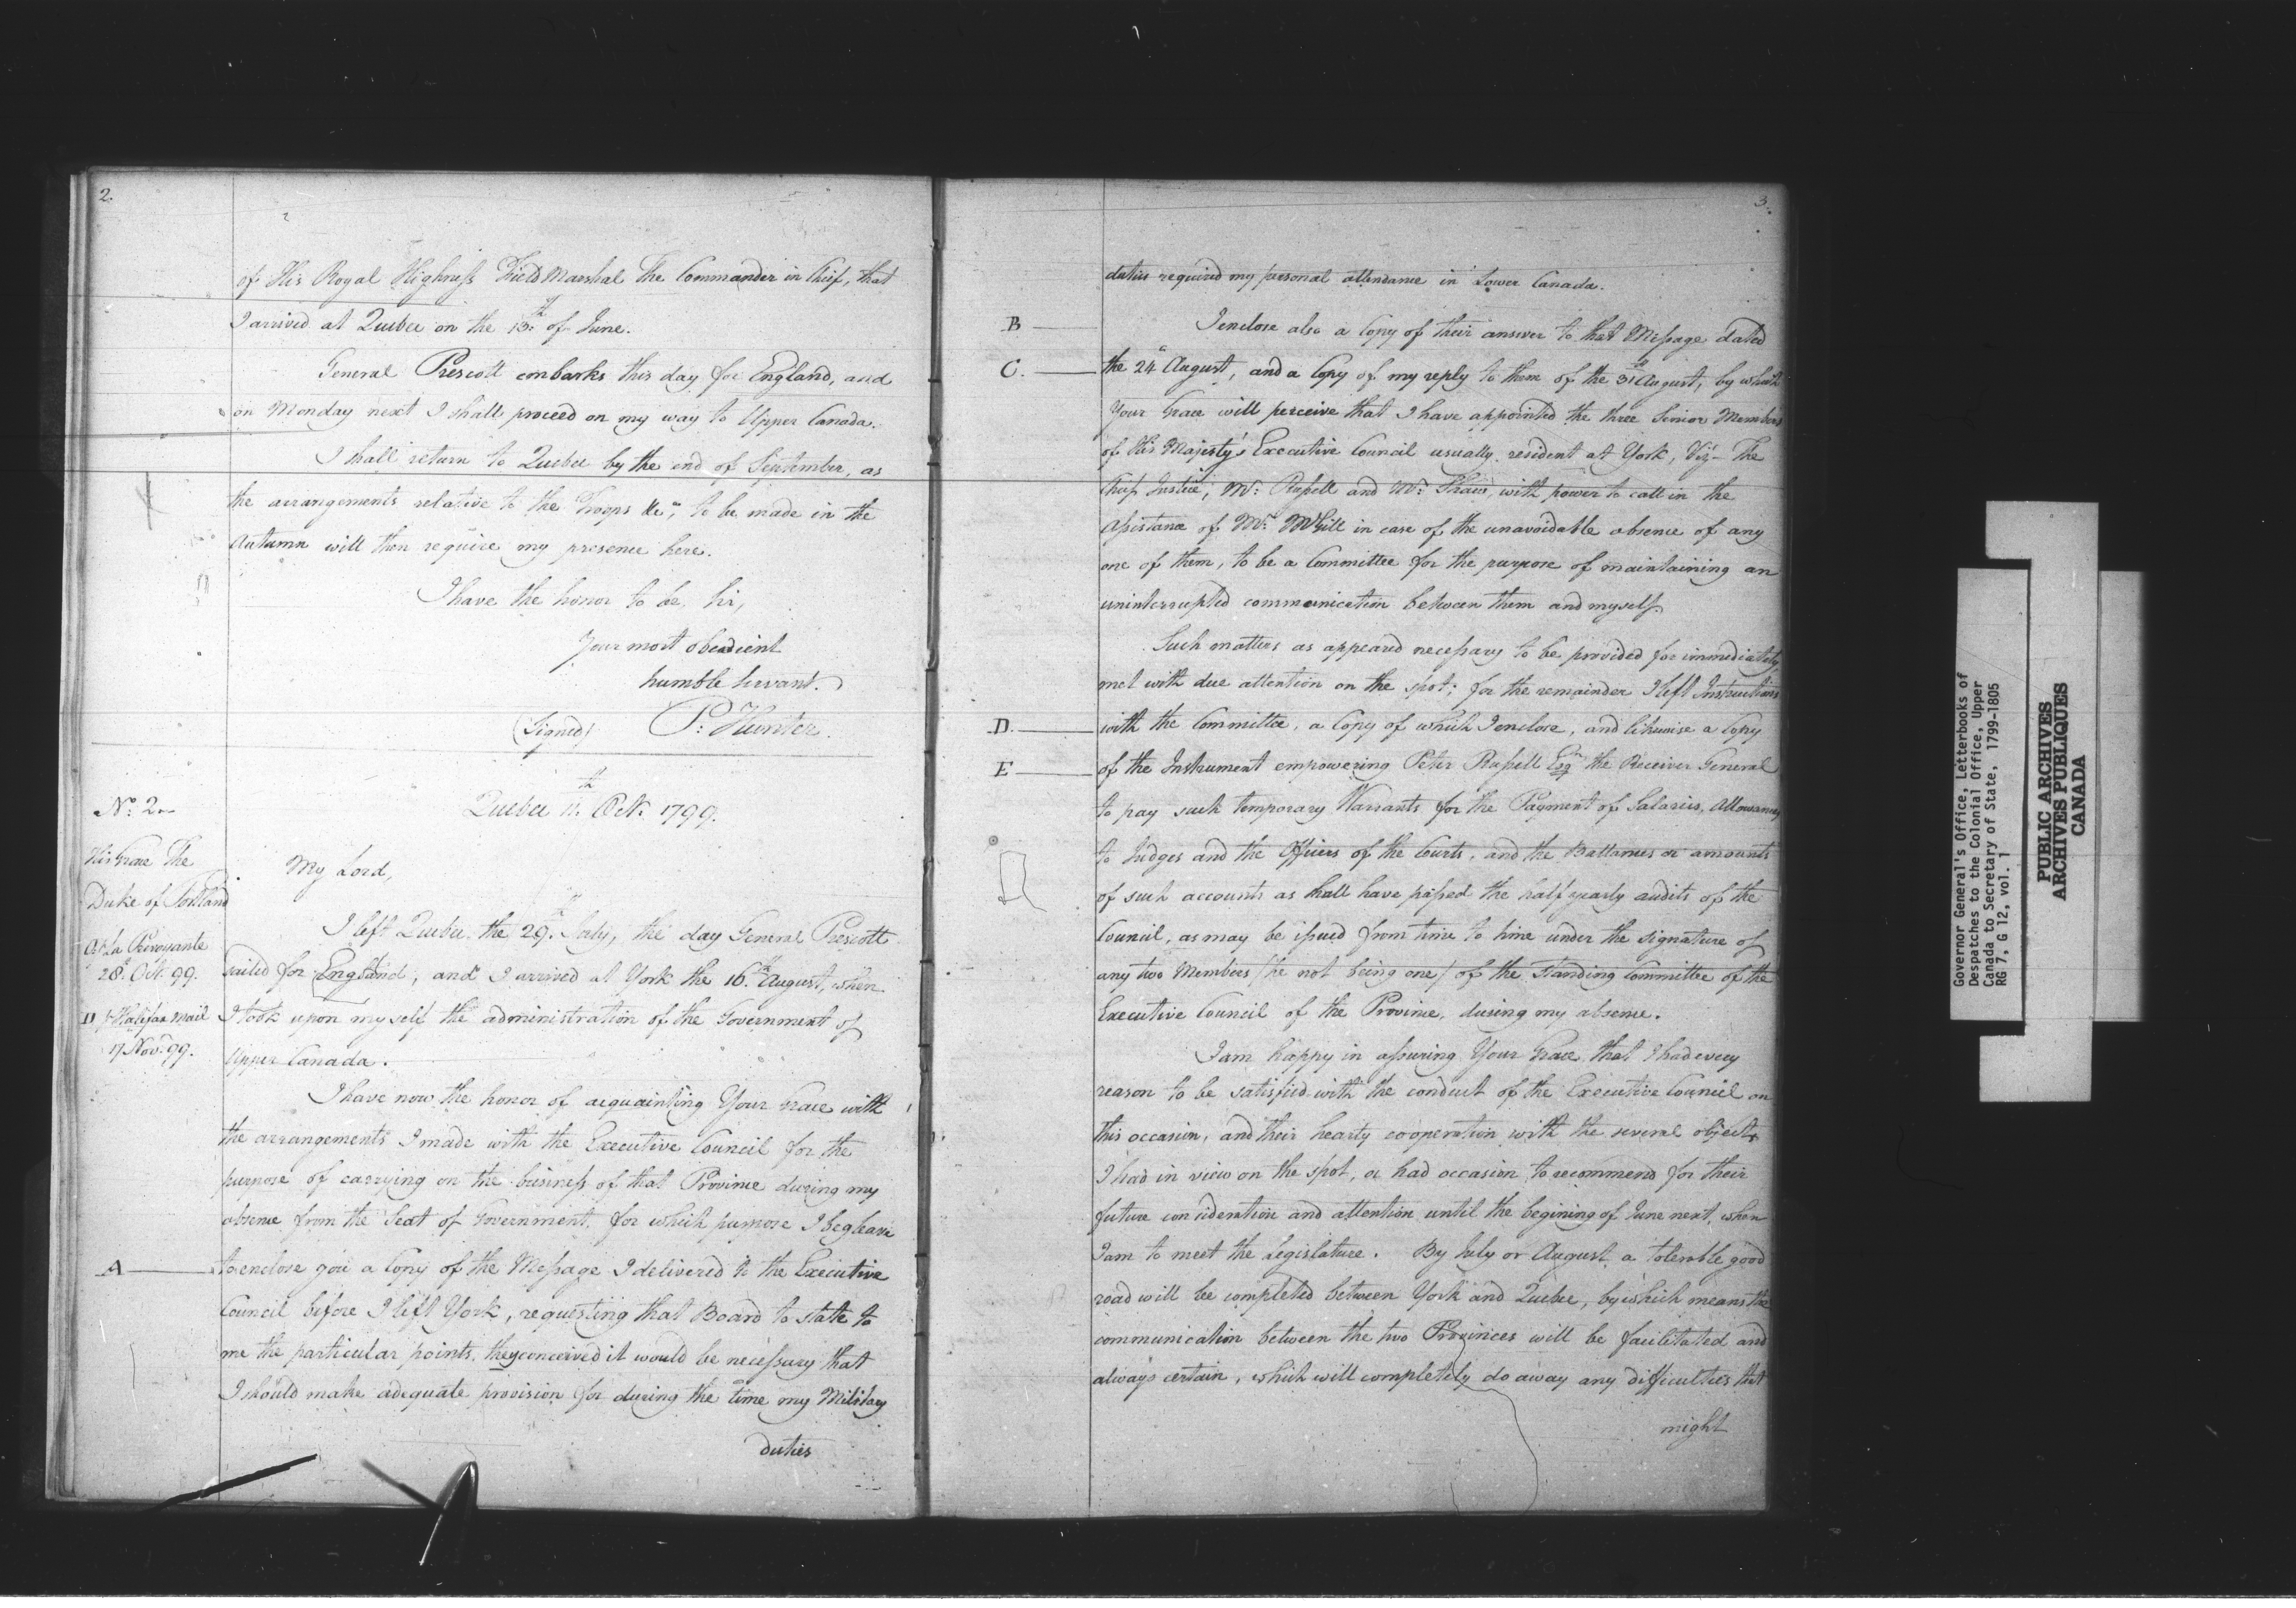 2.
of His Royal Highness Field Marshal the Commander in Chief, that
I arrived at Quebec on the 13th of June.
General Prescott embarks this day for England, and
on Monday next I shall proceed on my way to Upper Canada.
I shall return to Quebec by the end of September, as
the arrangements relative to the Troops &ca, to be made in the
Autumn will then require my presence here.
I have the honor to be, Sir,
Your most obedient
humble Servant.
(Signed) P: Hunter.
No. 2
Quebec 11th Octr. 1799.
His Grace The
Duke of Portland
My Lord,
I left Quebec the 29th July, the day General Prescott
La Prevoyante
28th Octr. 99.
sailed for England, and I arrived at York the 16th August, when
D Halifax Mail
17 Novr. 99.
I took upon myself the administration of the Government of
Upper Canada.
I have now the honor of acquainting Your Grace with
the arrangements I made with the Executive Council for the
purpose of carrying on the business of that Province during my
absence from the Seat of Government, for which purpose I beg leave
A
to enclose you a Copy of the Message I delivered to the Executive
Council before I left York, requesting that Board to state to
me the particular points, they conceived it would be necessary that
I should make adequate provision for during the time my Military
duties
3.
duties required my personal attendance in Lower Canada.
B
I enclose also a Copy of their answer to that Message dated
C.
the 24th August, and a Copy of my reply to them of the 31st August, by which
Your Grace will perceive that I have appointed the three Senior Members
of His Majesty's Executive Council usually resident at York, Vizt The
Chief Justice, Mr. Russell and Mr. Shaw, with power to call in the
Assistance of Mr. McGill in case of the unavoidable absence of any
one of them, to be a Committee for the purpose of maintaining an
uninterrupted communication between them and myself.
Such matters as appeared necessary to be provided for immediately,
met with due attention on the spot; for the remainder I left Instructions
D.
with the Committee, a Copy of which I enclose, and likewise a Copy
E
of the Instrument empowering Peter Russell Esqr. the Receiver General
to pay such temporary Warrants for the Payment of Salaries, Allowances
to Judges and the Officers of the Courts, and the Ballances or amounts
of such accounts as shall have passed the half yearly audits of the
Council, as may be issued from time to time under the signature of
any two Members (he not being one) of the Standing Committee of the
Executive Council of the Province, during my absence.
I am happy in assuring Your Grace that I had every
reason to be satisfied with the conduct of the Executive Council on
this occasion, and their hearty cooperation with the several objects
I had in view on the spot, or had occasion to recommend for their
future consideration and attention until the begining of June next, when
I am to meet the Legislature. By July or August a tolerable good
road will be completed between York and Quebec, by which means the
communication between the two Provinces will be facilitated and
always certain, which will completely do away any difficulties that
might
Governor General's Office, Letterbooks of
Despatches to the Colonial Office, Upper
Canada to Secretary of State, 1799-1805
RG 7, G 12, vol. 1
PUBLIC ARCHIVES
ARCHIVES PUBLIQUES
CANADA